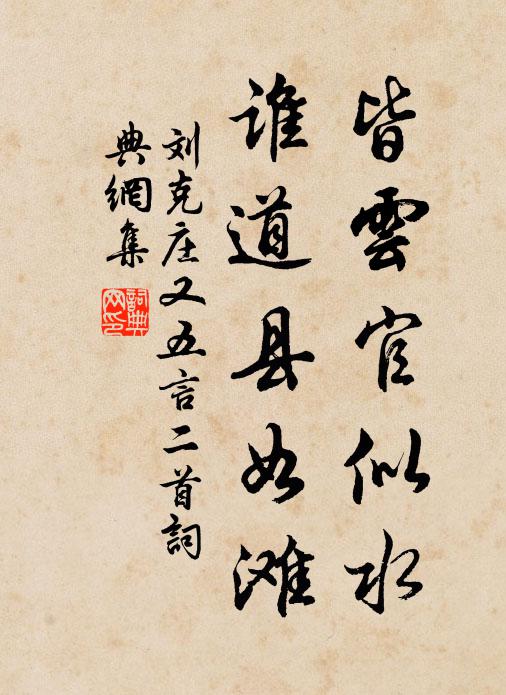 皆雲官似水
谁道县如滩
刘克庄又五言二首詞
典網集
詞典網印